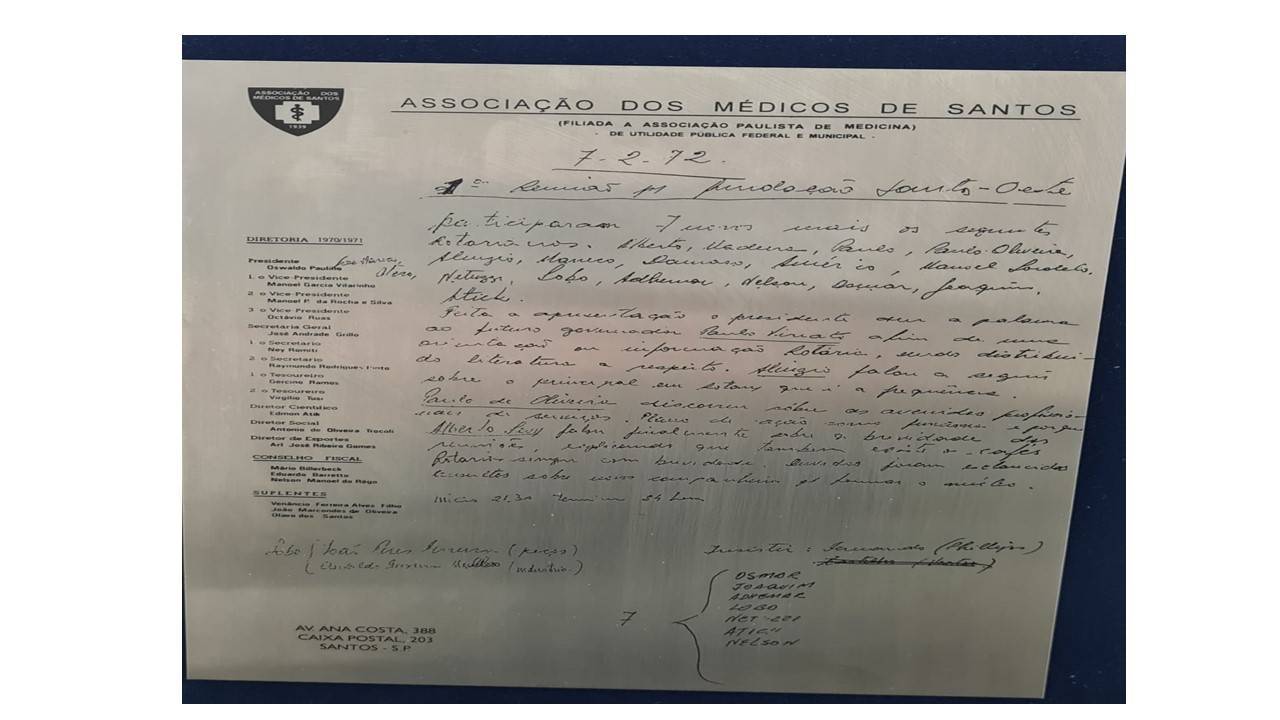 ASSOCIAÇÃO DOS
MÉDICOS DE SANTOS
1939
ASSOCIAÇÃO DOS MÉDICOS DE SANTOS
(FILIADA A ASSOCIAÇÃO PAULISTA DE MEDICINA)
- DE UTILIDADE PÚBLICA FEDERAL E MUNICIPAL -
7-2-72.
1ª Reunião p/ fundação Santo-Oeste
participaram 7 novos mais os seguintes
Rotarianos. Alberto, Madeira, Paulo, Paulo Oliveira,
Aluizio, Damaso, Américo, Manoel
Lobo, Adhemar, Nelson, Osmar, Joaquim,
Atich.
Feita a apresentação o presidente deu a palavra
ao futuro governador Paulo Viriato afim de uma
orientação ou informação Rotária, sendo distribui-
do literatura a respeito. Aluizio falou a seguir
sobre o principal em rotary que é a frequência.
Paulo de Oliveira discorreu sôbre as avenidas profissio-
nais de serviços. Plano de ação como funciona e porque
Alberto falou finalmente sobre a brevidade das
reuniões, explicando que tambem
Rotarios sempre com brevidade duvidas foram esclarecidas
sobre novos companheiros p/ formar o núcleo.
Inicio 21,30 Termino 24 hora
DIRETORIA 1970/1971
Presidente
Oswaldo Paulino
1.o Vice-Presidente
Manoel Garcia Vilarinho
2.o Vice-Presidente
Manoel P. da Rocha e Silva
3.o Vice-Presidente
Octávio Ruas
Secretaria Geral
José Andrade Grillo
1.o Secretario
Ney Romiti
2.o Secretario
Raymundo Rodrigues
1.o Tesoureiro
Gercino Ramos
2.o Tesoureiro
Virgílio Tusi
Diretor Científico
Edmon Atik
Diretor Social
Antonio de Oliveira Trocoli
Diretor de Esportes
Ari José Ribeiro Gomes
CONSELHO FISCAL
Mário Billerbeck
Eduardo Barretto
Nelson Manoel do Rêgo
SUPLENTES
Venâncio Ferreira Alves Filho
João Marcondes de Oliveira
Olavo dos Santos
Lobo João Peres (peças)
(Industria)
Fernando (Phillips)
7
OSMAR
JOAQUIM
ADHEMAR
LOBO
ATICH
NELSON
AV. ANA COSTA, 388
CAIXA POSTAL, 203
SANTOS - S.P.